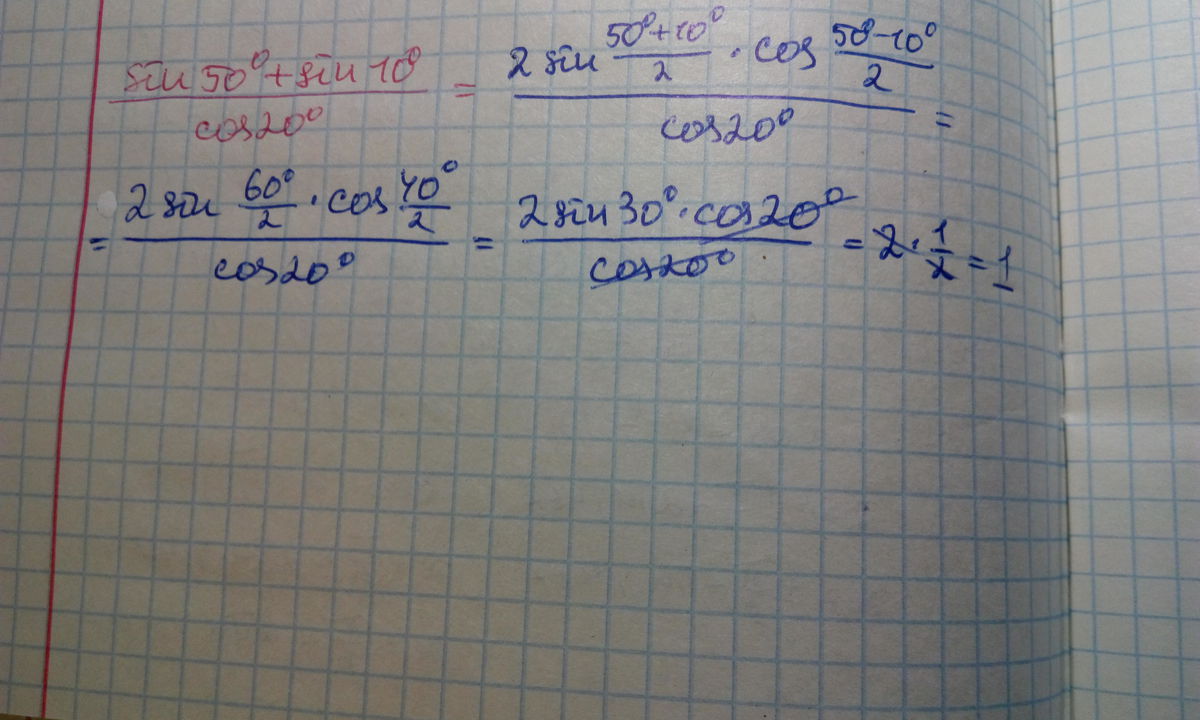 (sin 50° + sin 10°)/(cos 20°) = (2 sin (50° + 10°)/2 · cos (50° − 10°)/2)/(cos 20°) =
= (2 sin 60°/2 · cos 40°/2)/(cos 20°) = (2 sin 30° · cos 20°)/(cos 20°) = 2 · 1/2 = 1